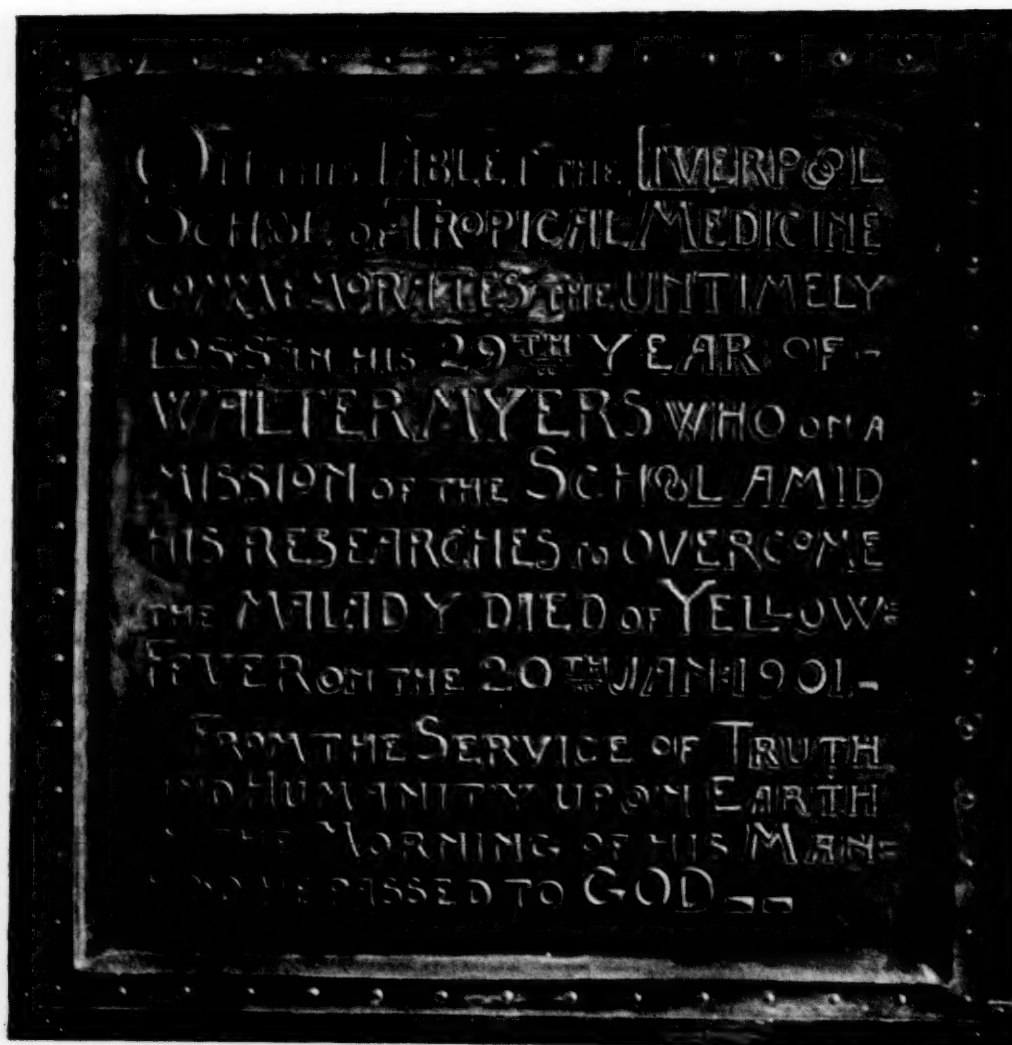 ON THIS TABLET THE LIVERPOOL
SCHOOL OF TROPICAL MEDICINE
COMMEMORATES THE UNTIMELY
LOSS IN HIS 29TH YEAR OF -
WALTER MYERS WHO ON A
MISSION OF THE SCHOOL AMID
HIS RESEARCHES TO OVERCOME
THE MALADY DIED OF YELLOW=
FEVER ON THE 20TH JAN: 1901 -
FROM THE SERVICE OF TRUTH
AND HUMANITY UPON EARTH
IN THE MORNING OF HIS MAN=
HOOD HE PASSED TO GOD --